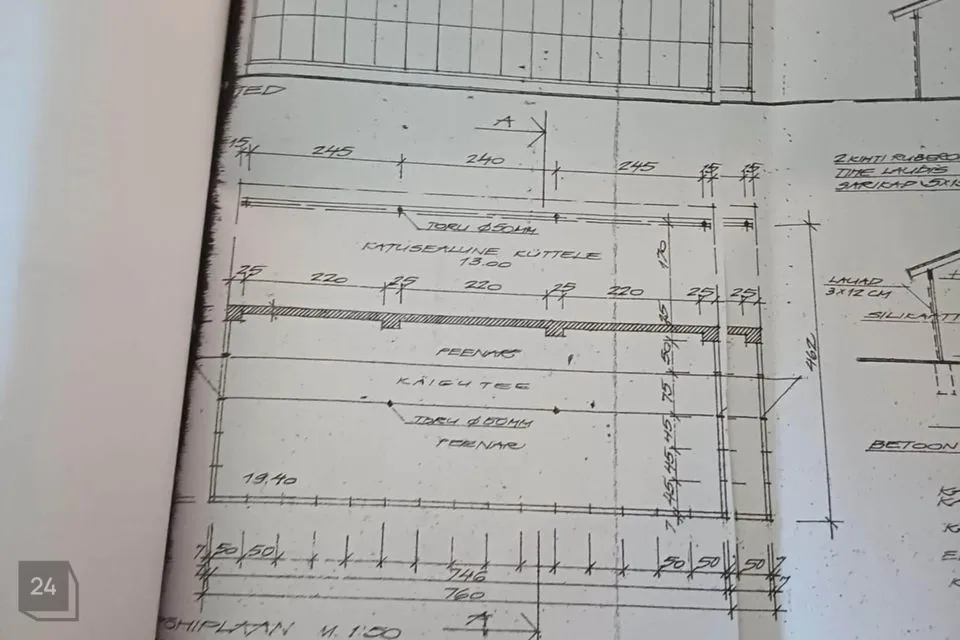 TED
A
15 245 240 245 15 15
2 KIHTI
TIHE LAUDIS
SARIKAD
TORU Ø50MM
KATUSEALUNE KÜTTELE
13.00
170
25 220 25 220 25 220 25 25
LAUAD
3X12CM
25
PEENAR
50
462
KÄIGUTEE
75
TORU Ø50MM
PEENAR
45
45
45
BETOON
19.40
7
7 50 50 50 50 50 7
746
7
760
24
M 1:50
A